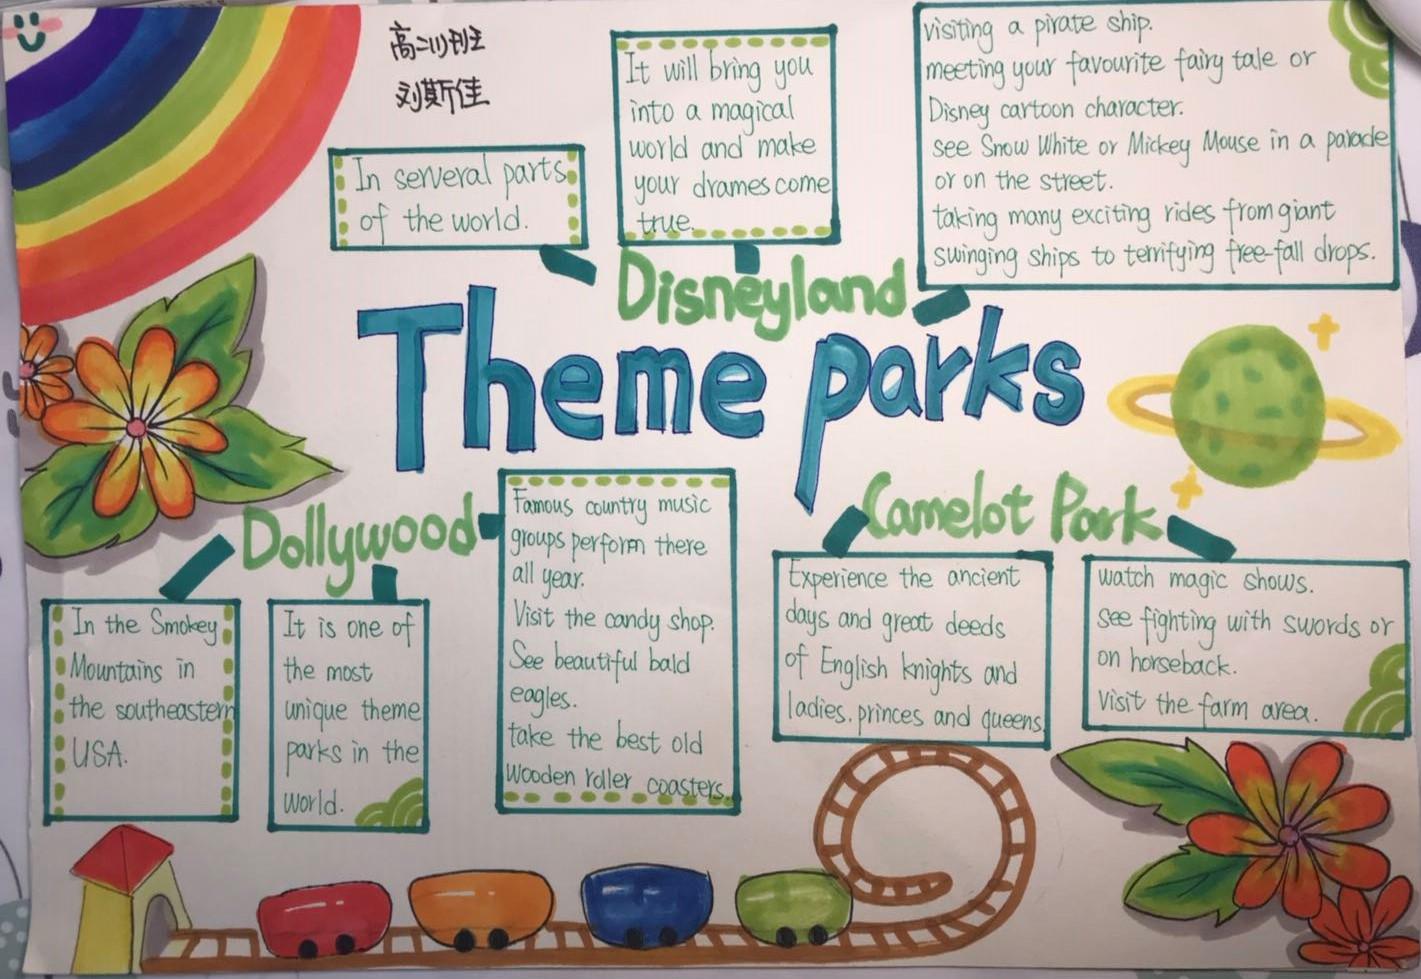 高二(1)班
刘斯佳
In serveral parts
of the world.
It will bring you
into a magical
world and make
your drames come
true.
visiting a pirate ship.
meeting your favourite fairy tale or
Disney cartoon character.
see Snow White or Mickey Mouse in a parade
or on the street.
taking many exciting rides from giant
swinging ships to terrifying free-fall drops.
Disneyland
Theme parks
Dollywood
In the Smokey
Mountains in
the southeastern
USA.
It is one of
the most
unique theme
parks in the
world.
Famous country music
groups perform there
all year.
Visit the candy shop.
See beautiful bald
eagles.
take the best old
wooden roller coasters.
Camelot Park
Experience the ancient
days and great deeds
of English knights and
ladies, princes and queens
watch magic shows.
see fighting with swords or
on horseback.
visit the farm area.